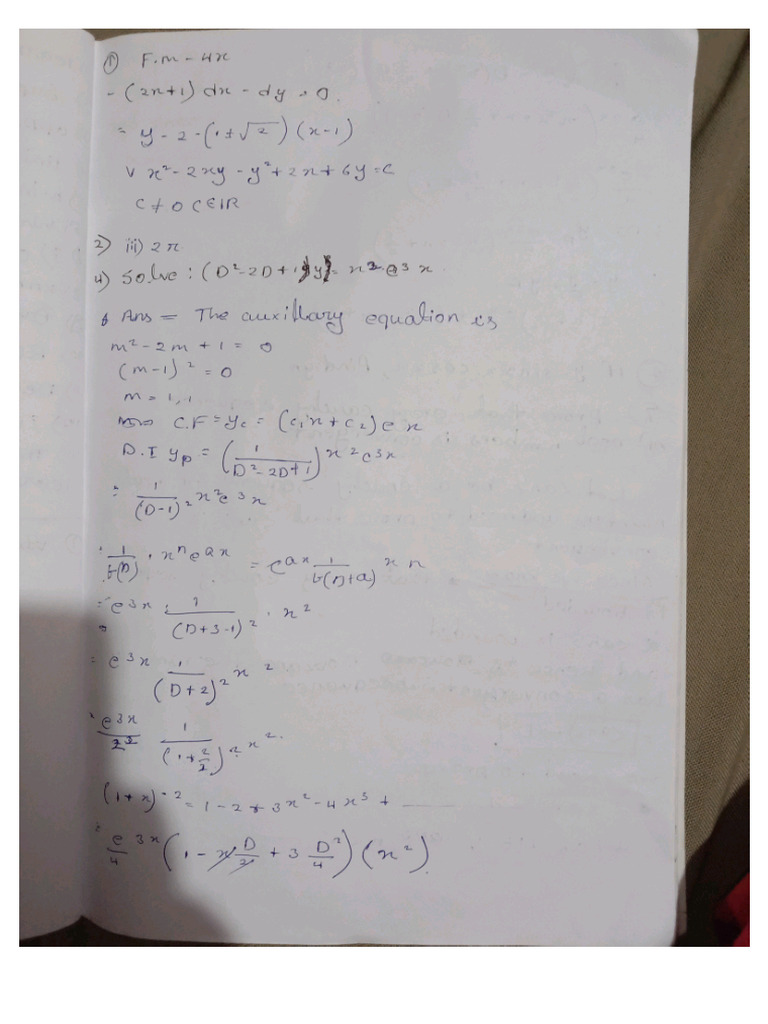 ① F.m - 4x
- (2x+1) dx - dy = 0.
= y - 2 - (1 ± √2) (x-1)
v x² - 2xy - y² + 2x + 6y = c
C ≠ 0 C ∈ IR
2) iii) 2π
4) Solve : (D² - 2D + 1)y = x² e³x
Ans = The auxillary equation is
m² - 2m + 1 = 0
(m-1)² = 0
m = 1, 1
C.F = yc = (c₁x + c₂) e x
P.I yp = (1/(D² - 2D + 1)) x² e³x
= 1/(D-1)² x² e³x
1/f(D) · xⁿ eax = eax 1/f(D+a) x n
= e³x · 1/(D+3-1)² · x²
= e³x 1/(D+2)² x²
e³x/2² 1/(1+2/2)² x².
(1+x)-² = 1 - 2 + 3x² - 4x³ + ......
= e/4 ³x (1 - 2 D/2 + 3 D²/4) (x²).